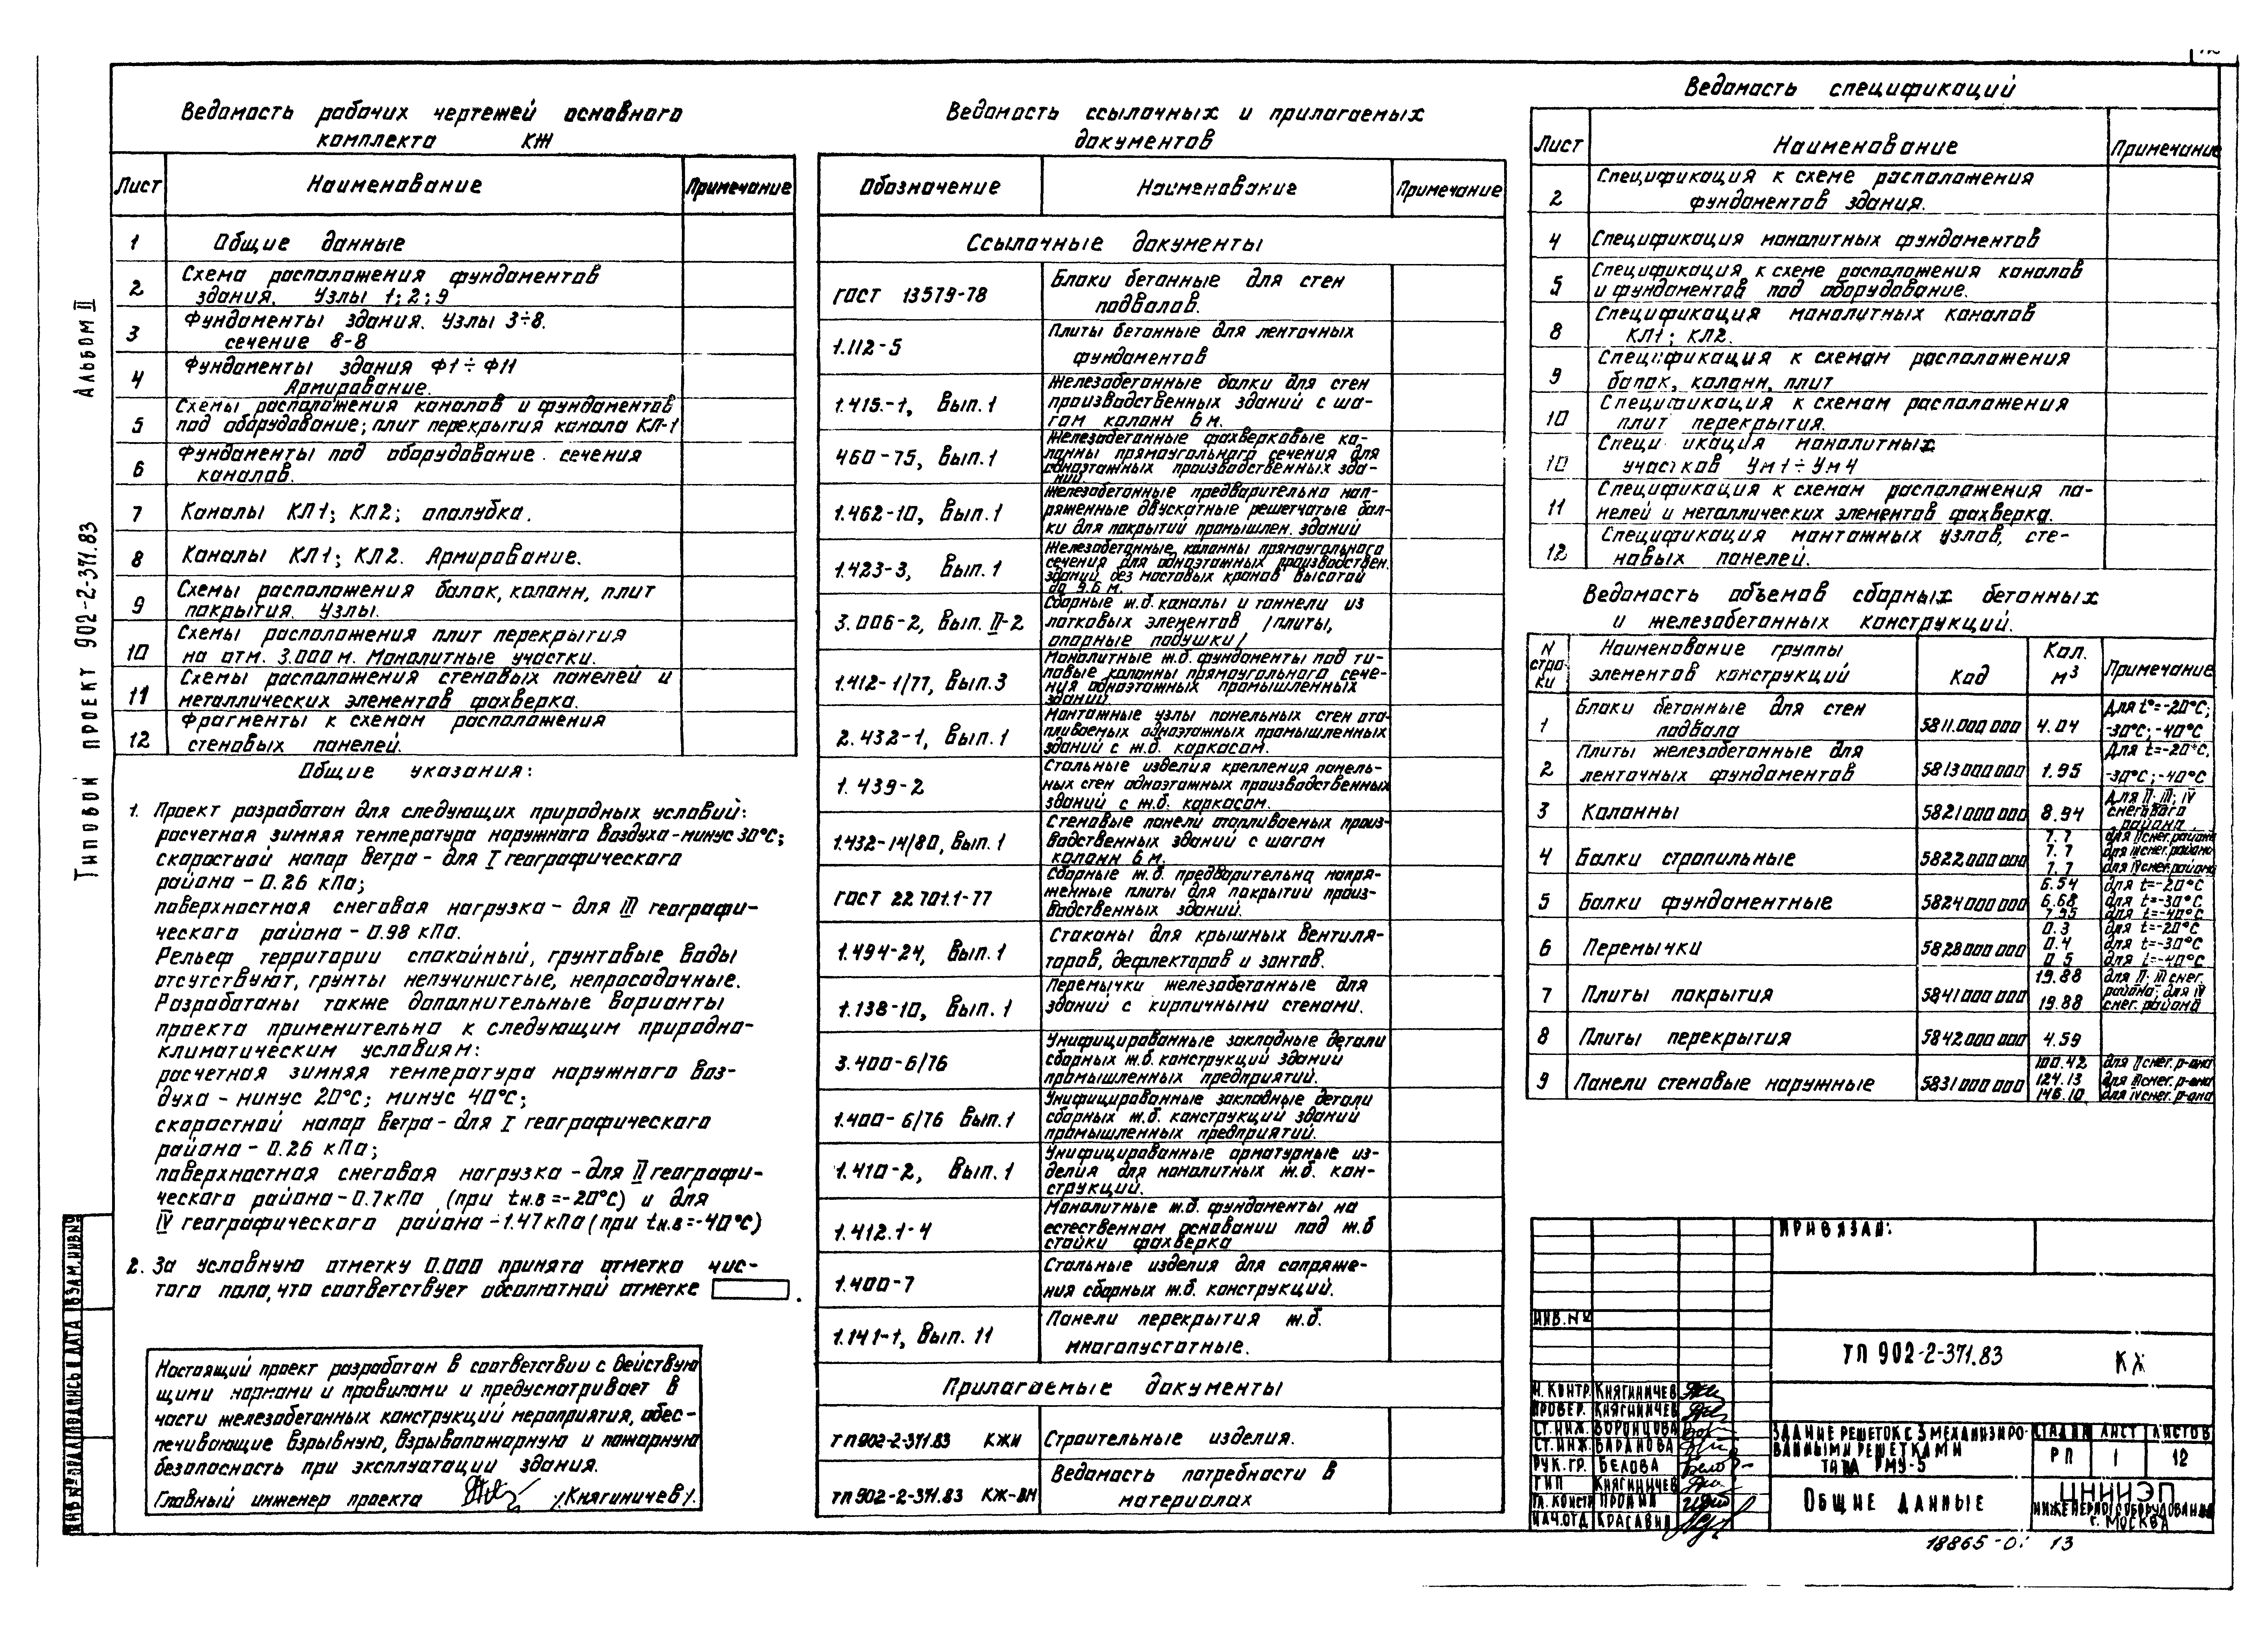 Альбом II
Типовой проект 902-2-371.83
Ведомость рабочих чертежей основного
комплекта КЖ
Лист Наименование Примечание
1 Общие данные
2 Схема расположения фундаментов
здания. Узлы 1; 2; 9
3 Фундаменты здания. Узлы 3÷8.
сечение 8-8
4 Фундаменты здания Ф1÷Ф11
Армирование.
5 Схемы расположения каналов и фундаментов
под оборудование; плит перекрытия канала КЛ-1
6 Фундаменты под оборудование. сечения
каналов.
7 Каналы КЛ1; КЛ2; опалубка.
8 Каналы КЛ1; КЛ2. Армирование.
9 Схемы расположения балок, колонн, плит
покрытия. Узлы.
10 Схемы расположения плит перекрытия
на отм. 3.000 м. Монолитные участки.
11 Схемы расположения стеновых панелей и
металлических элементов фахверка.
12 Фрагменты к схемам расположения
стеновых панелей.
Общие указания:
1. Проект разработан для следующих природных условий:
расчетная зимняя температура наружного воздуха - минус 30°С;
скоростной напор ветра - для I географического
района - 0.26 кПа;
поверхностная снеговая нагрузка - для III географи-
ческого района - 0.98 кПа.
Рельеф территории спокойный, грунтовые воды
отсутствуют, грунты непучинистые, непросадочные.
Разработаны также дополнительные варианты
проекта применительно к следующим природно-
климатическим условиям:
расчетная зимняя температура наружного воз-
духа - минус 20°С; минус 40°С;
скоростной напор ветра - для I географического
района - 0.26 кПа;
поверхностная снеговая нагрузка - для II географи-
ческого района - 0.7 кПа (при tн.в = -20°С) и для
IV географического района - 1.47 кПа (при tн.в = -40°С)
2. За условную отметку 0.000 принята отметка чис-
того пола, что соответствует абсолютной отметке .
Настоящий проект разработан в соответствии с действую
щими нормами и правилами и предусматривает в
части железобетонных конструкций мероприятия, обес-
печивающие взрывную, взрывопожарную и пожарную
безопасность при эксплуатации здания.
Главный инженер проекта /Княгиничев/.
Ведомость ссылочных и прилагаемых
документов
Обозначение Наименование Примечание
Ссылочные документы
ГОСТ 13579-78 Блоки бетонные для стен
подвалов.
1.112-5 Плиты бетонные для ленточных
фундаментов
1.415.-1, Вып.1 Железобетонные балки для стен
производственных зданий с ша-
гом колонн 6 м.
460-75, Вып.1 Железобетонные фахверковые ко-
лонны прямоугольного сечения для
одноэтажных производственных зда-
ний.
1.462-10, Вып.1 Железобетонные предварительно нап-
ряженные двускатные решетчатые бал-
ки для покрытий промышлен. зданий
1.423-3, Вып.1 Железобетонные колонны прямоугольного
сечения для одноэтажных производствен.
зданий без мостовых кранов высотой
до 9.6 м.
3.006-2, Вып. II-2 Сборные ж.б. каналы и тоннели из
лотковых элементов /плиты,
опорные подушки/
1.412-1/77, Вып.3 Монолитные ж.б. фундаменты под ти-
повые колонны прямоугольного сече-
ния одноэтажных промышленных
зданий.
2.432-1, Вып.1 Монтажные узлы панельных стен ота-
пливаемых одноэтажных промышленных
зданий с ж.б. каркасом.
1.439-2 Стальные изделия крепления панель-
ных стен одноэтажных производственных
зданий с ж.б. каркасом.
1.432-14/80, Вып.1 Стеновые панели отапливаемых произ-
водственных зданий с шагом
колонн 6 м.
ГОСТ 22701.1-77 Сборные ж.б. предварительно напря-
женные плиты для покрытий произ-
водственных зданий.
1.494-24, Вып.1 Стаканы для крышных вентиля-
торов, дефлекторов и зонтов.
1.138-10, Вып.1 Перемычки железобетонные для
зданий с кирпичными стенами.
3.400-6/76 Унифицированные закладные детали
сборных ж.б. конструкций зданий
промышленных предприятий.
1.400-6/76 Вып.1 Унифицированные закладные детали
сборных ж.б. конструкций зданий
промышленных предприятий.
1.410-2, Вып.1 Унифицированные арматурные из-
делия для монолитных ж.б. кон-
струкций.
1.412.1-4 Монолитные ж.б. фундаменты на
естественном основании под ж.б
стойки фахверка
1.400-7 Стальные изделия для сопряже-
ния сборных ж.б. конструкций.
1.141-1, Вып. 11 Панели перекрытия ж.б.
многопустотные.
Прилагаемые документы
тп 902-2-371.83 КЖИ Строительные изделия.
тп 902-2-371.83 КЖ-ВМ Ведомость потребности в
материалах
Ведомость спецификаций
Лист Наименование Примечание
2 Спецификация к схеме расположения
фундаментов здания.
4 Спецификация монолитных фундаментов
5 Спецификация к схеме расположения каналов
и фундаментов под оборудование.
8 Спецификация монолитных каналов
КЛ1; КЛ2.
9 Спецификация к схемам расположения
балок, колонн, плит
10 Спецификация к схемам расположения
плит перекрытия.
10 Специ икация монолитных
участков Ум1÷Ум4
11 Спецификация к схемам расположения па-
нелей и металлических элементов фахверка.
12 Спецификация монтажных узлов, сте-
новых панелей.
Ведомость объемов сборных бетонных
и железобетонных конструкций.
N стро-ки Наименование группы элементов конструкций Код Кол. м³ Примечание
1 Блоки бетонные для стен подвала 5811.000000 4.04 Для t°=-20°С; -30°С; -40°С
2 Плиты железобетонные для ленточных фундаментов 5813000000 1.95 Для t=-20°С; -30°С; -40°С
3 Колонны 5821000000 8.94 Для II; III; IV снегового района
4 Балки стропильные 5822000000 7.7 для II снег. района
7.7 для III снег. района
7.7 для IV снег. района
5 Балки фундаментные 5824000000 6.54 для t=-20°С
6.68 для t=-30°С
7.95 для t=-40°С
6 Перемычки 5828000000 0.3 для t=-20°С
0.4 для t=-30°С
0.5 для t=-40°С
7 Плиты покрытия 5841000000 19.88 для II; III снег. района; для IV
19.88 снег. района
8 Плиты перекрытия 5842000000 4.59
9 Панели стеновые наружные 5831000000 100.42 для II снег. р-она
124.13 для III снег. р-она
146.10 для IV снег. р-она
Привязан:
Инв. №
ТП 902-2-371.83 КЖ
Н. контр. Княгиничев
Провер. Княгиничев
Ст. инж. Воронцова
Ст. инж. Баранова
Рук. гр. Белова
ГИП Княгиничев
Гл. констр Пронин
Нач. отд Красавин
Здание решеток с 3 механизиро-
ванными решетками
типа РМУ-5
Стадия Лист Листов
РП 1 12
Общие данные
ЦНИИЭП
инженерного оборудования
г. Москва
Инв № подл Подпись и дата Взам. инв №
18865-0 13